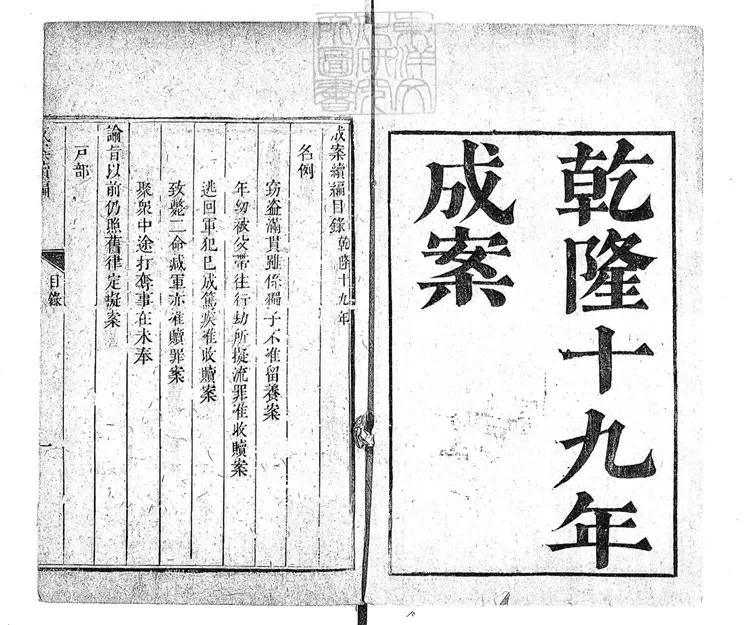 乾隆十九年
成案
成案續編目錄 乾隆十九年
名例
竊盜滿貫雖係獨子不准留養案
年幼被父帶往行劫所擬流罪准收贖案
逃回軍犯已成篤疾准收贖案
致斃二命減軍亦准贖罪案
聚衆中途打奪事在未奉
諭旨以前仍照舊律定擬案
戸部
成案續編
目錄
一
東洋文
化研究
所圖書